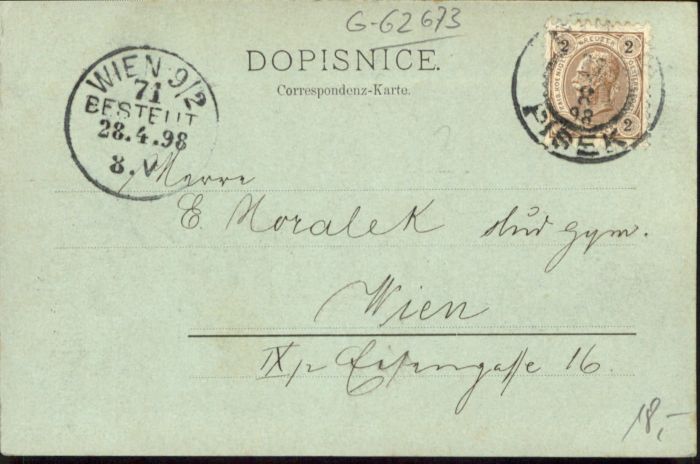 G-62673
DOPISNICE.
Correspondenz-Karte.
WIEN 9/2
71
BESTELLT
28.4.98
8.V
2 KREUZER 2
2
PISEK
98
Herrn
E. Moralek stud gym.
Wien
IX/2 Eisengasse 16.
18,-